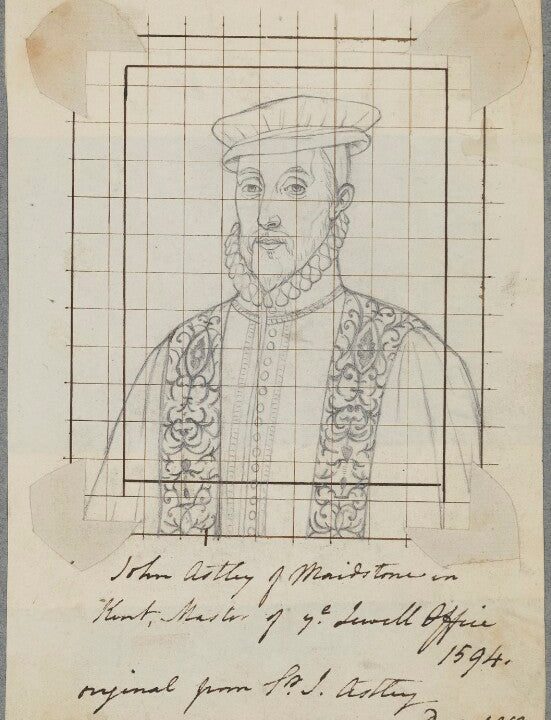 John Astley of Maidstone in
Kent, Master of yᵉ Jewell Office
1594.
original from Sʳ J. Astley